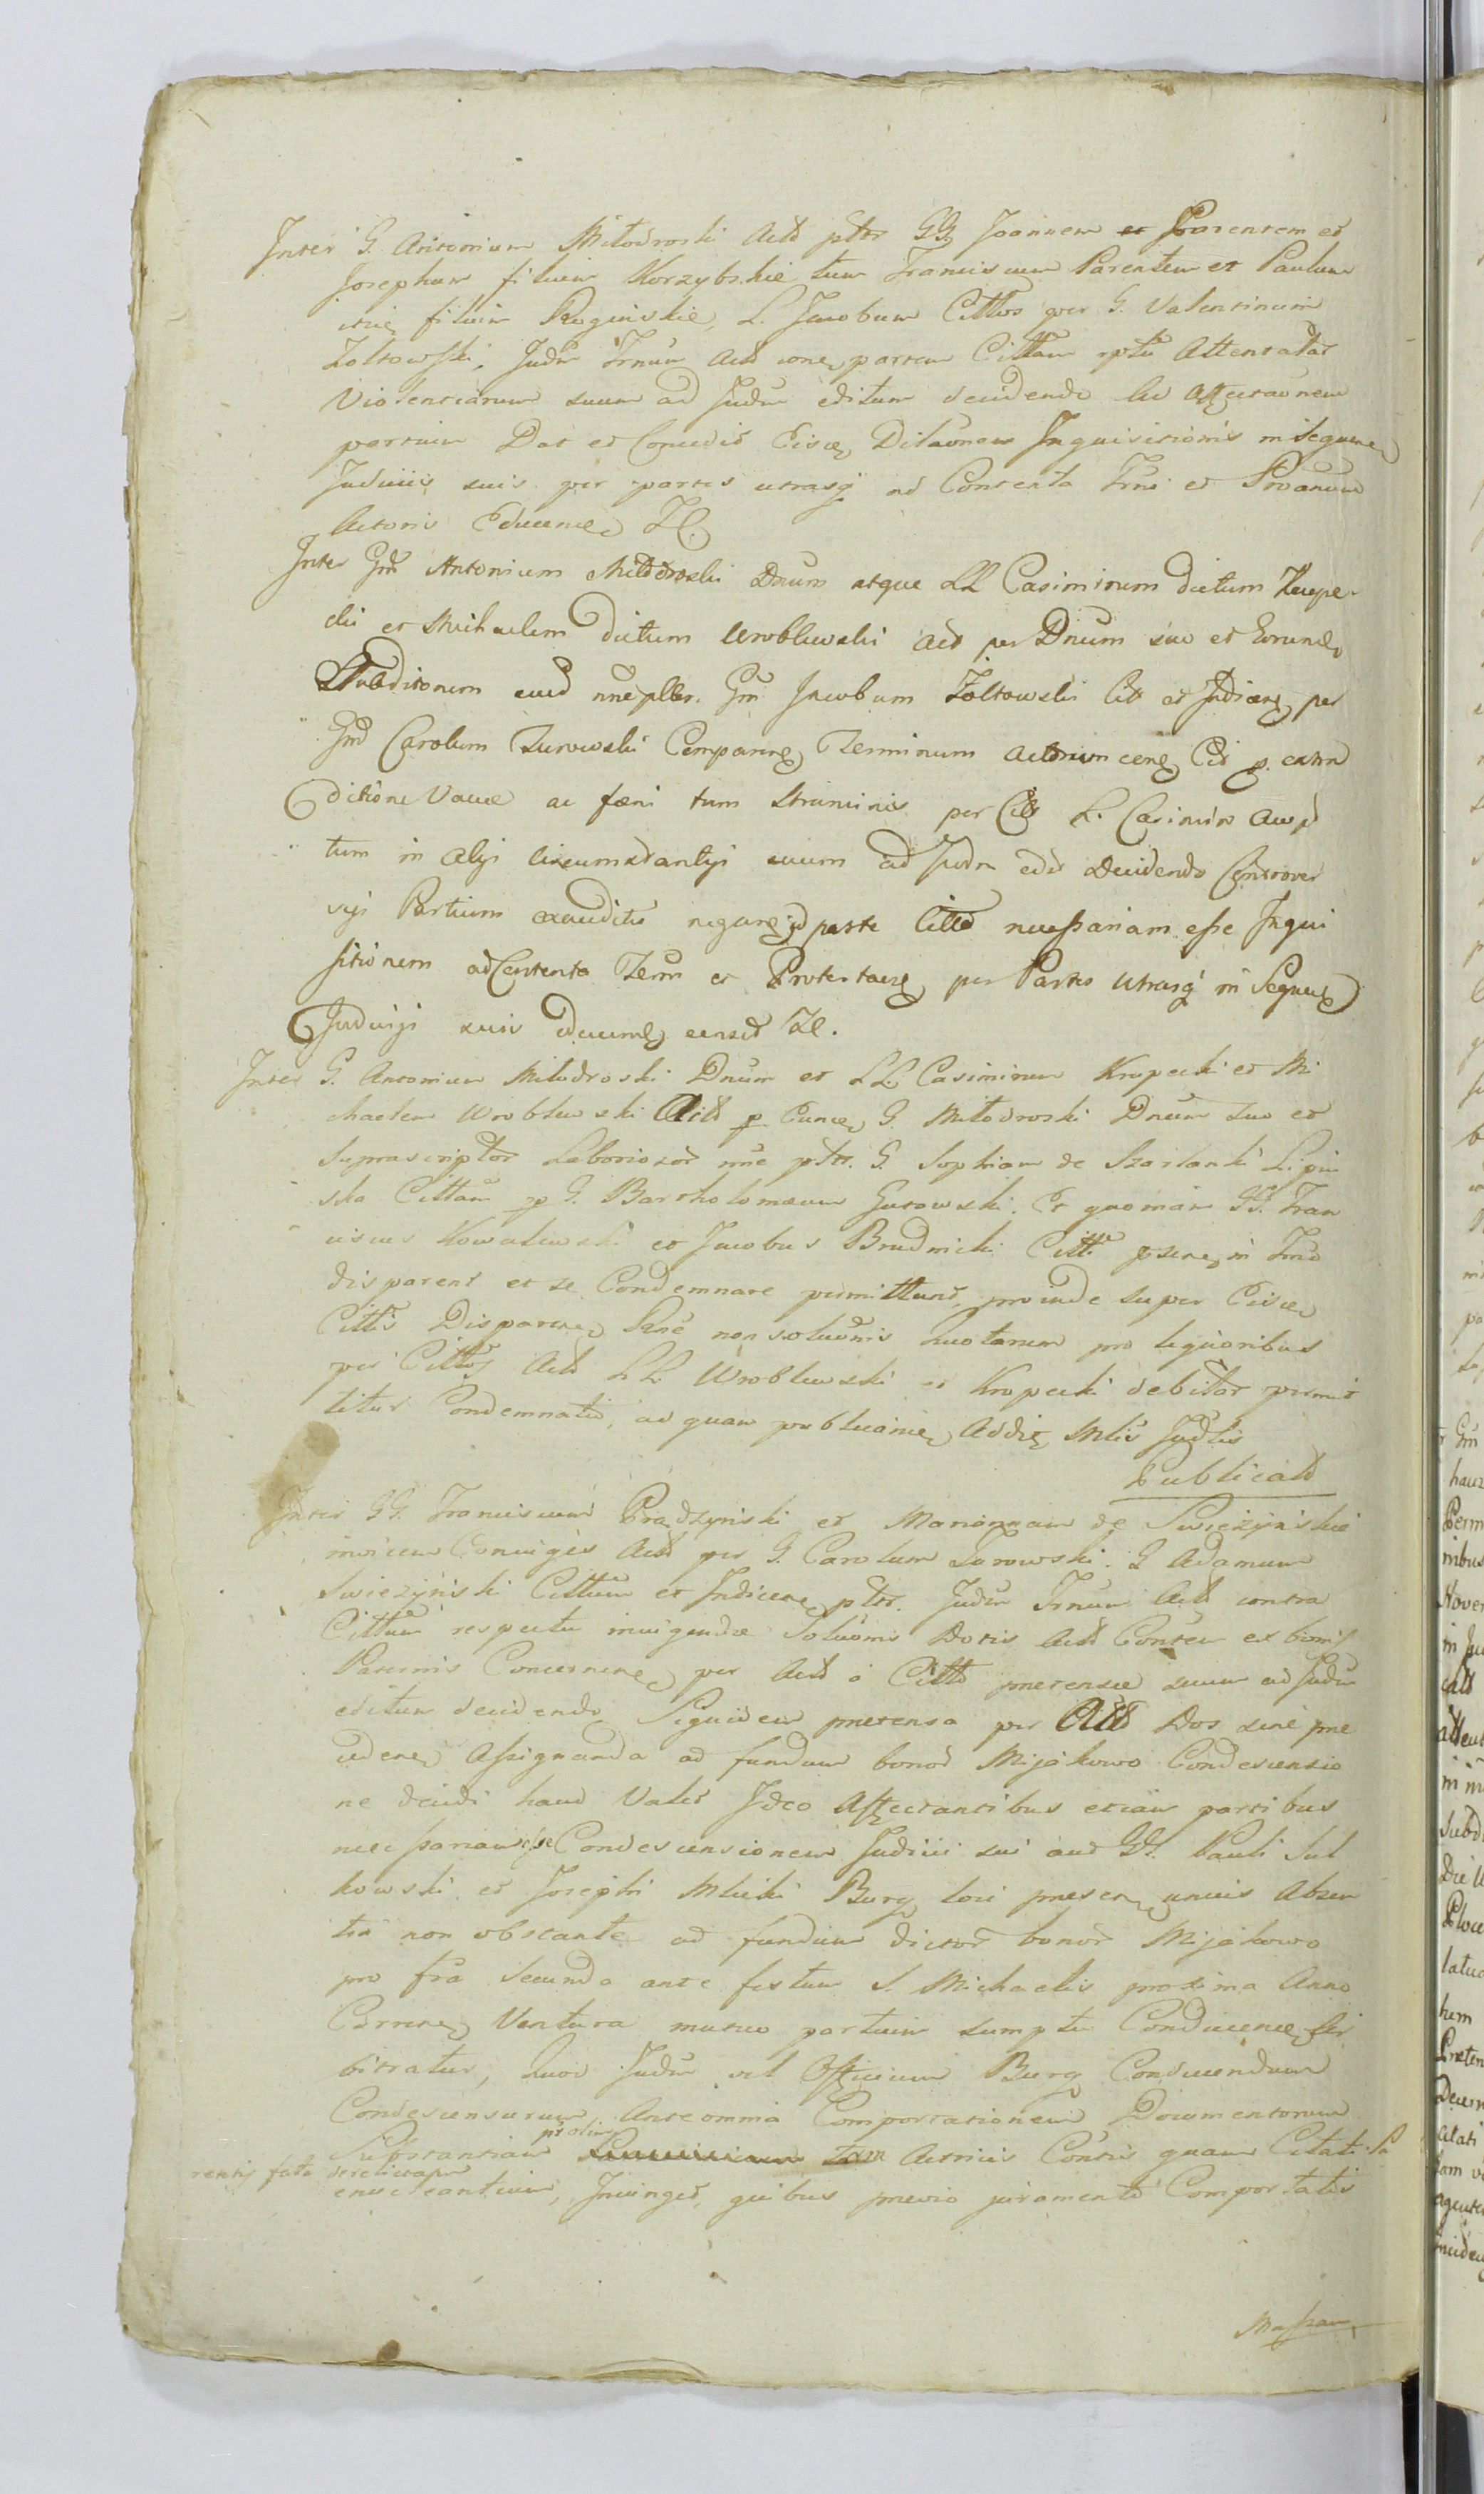 Inter G. Antonium Miłodroski Actt ptbr GG Joannem et Parentem et
Josephum filium Korzybskie tum Franciscum Parentem et Paulum
filium Roginskie, L. Jacobum Cittos per G. Valentinum
Zoltowski, Judm Trnum Actt partem Cittam rptu Attentatar
Violentiarum suum ad Judm editum decidendo Ad affectaonem
partium Dat et Concedit Eisce Dilaonem Inquisitionis in Sequene
Judiciis suis per partes utrasq ad Contenta Trni et
Actoris Educence ZC.
Inter Gm Antonium Miłodroski Dnum atque LL Casimirum dictum Krupe-
cki et Michaelem dictum Wroblewski act per Dnum suo et Eorunde
Subditorum eund nne ptbr. Gm Jacobum Zoltowski Citt et Indicere per
Gm Carolum Turowski Comparere Terminum actorum cene Cit p. extra
ditione Vaccæ ac fæni tum Straminis per Citt L. Casimiro
tum in alys circumstantys suum ad Judm edit Decidendo Controver
sys Partium exauditis parte Citta necessariam esse Inqui
sitionem ad Contenta Term et Protestaene per Partes utrasq in Sequene
Judicys suis educend censet ZC.
Inter G. Antonium Miłodroski Dnum et LL Casimirum Kropecki et Mi
chaelem Wroblewski Actt p. Eunce G. Miłodroski Dnum suo et
Suprascriptor Laboriosor nne ptbr. G. Sophiam de Szarlanki Lipin
ska Cittam p G. Bartholomæum Gutowski. Et quoniam GG. Fran
ciscus Kowalewski et Jacobus Brudnicki Citti psene in Trno
disparent et se Condemnare permittunt, proinde super Eisce
Cittis Disparene Rne non soluonis quotarum pro liquoribus
per Cittos Actt LL Wroblewski et Kropecki debitar permit
titur Condemnatio, ad quam publicanie Addit Mlis Judlis
Publicatt
Inter GG. Franciscum Prądzynski et Mariannam de Swiezÿnskie
invicem Conuiges Actt per G. Carolum Turowski. G Adamum
Swiezÿnski Cittum et Indicere ptbr. Judm Trnum Actt contra
Cittum respectu iniungendæ Soluonis Dotis Actt Contr ex bonis
Paternis Concernene per Actt a Citto pretensæ suum ad Judm
editum decidendo Siquidem pretensa per Actt Dos sine præ
cedene Assignanda ad fundum bonor Mijakowo Condescensio
ne decidi haud Valet Ideo Affectantibus etiam partibus
necessariam esse Condescensionem Judicii sui aut GG. Pauli Sul
kowski et Josephi Mlicki Burg loci presen unius Absen
tia non obstante ad fundum dictor bonor Mijakowo
pro fra Secunda ante festum S. Michaelis proxima Anno
Currene Ventura mutuo partium sumptu Conducence Ar
bitratur, quod Judm vel Officium Burg Conducendum
Condescensurum, Ante omnia Comportationem Documentorum
Substantiam Actricis Contis quam Citati Pa
rentis fata derelictam
enucleantium, Iniunget, quibus previo juramento Comportatis
Massam